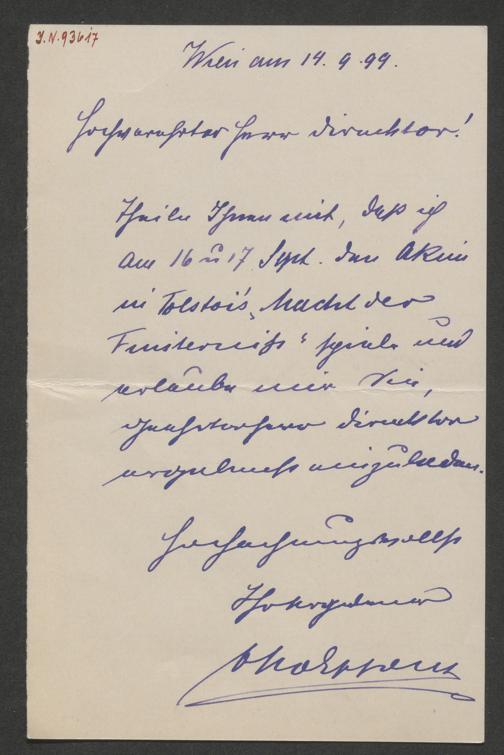 I.N. 93617
Wien am 14.9.99.
Hochverehrter Herr Direcktor!
Theile Ihnen mit, daß ich
am 16 u 17 Sept. den Akim
in Tolstoi's „Macht der
Finsterniß“ spiele und
erlaube mir Sie,
geehrter Herr Direcktor
ergebenst einzuladen.
Hochachtungsvollst
Ihr ergebener